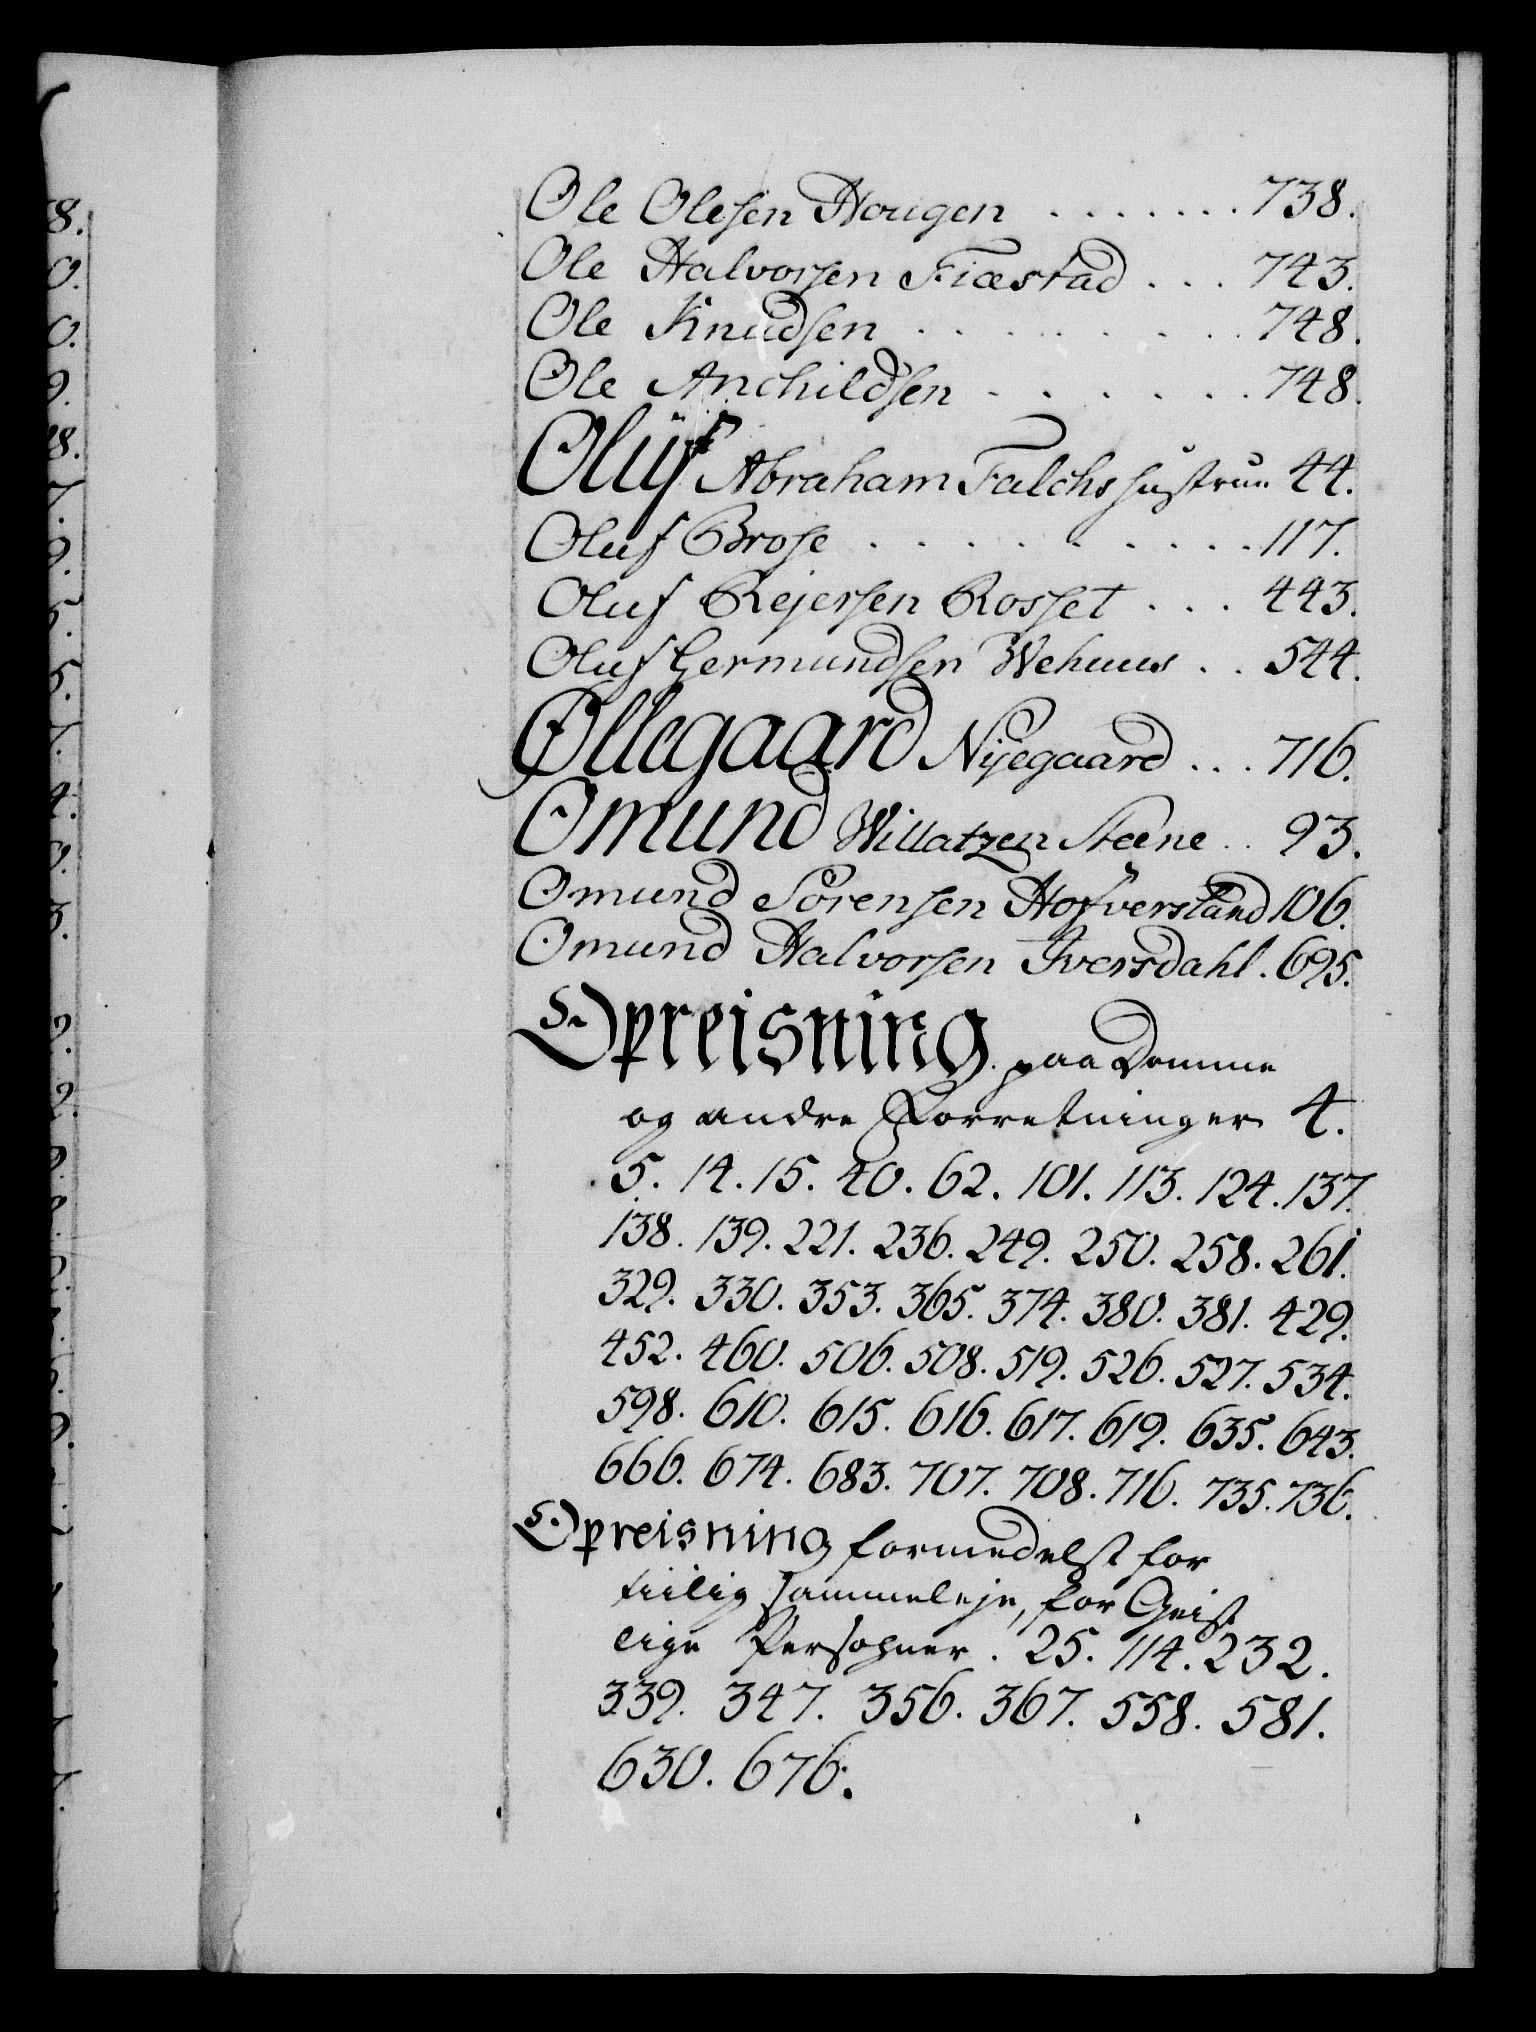 Ole Olesen Hougen . . . . . . . 738.
Ole Halvorsen Fiæstad . . . 743.
Ole Knudsen . . . . . . . . . 748.
Ole Anchildsen . . . . . . . 748.
Olüf Abraham Falchs hustrue 44.
Oluf Brose . . . . . . . . . . 117.
Oluf Rejersen Rosset . . . 443.
Oluf Germundsen Wehuus . . 544.
Øllegaard Nyegaard . . . 716.
Omund Willatzen Steene . . 93.
Omund Sørensen Hofverstand 106.
Omund Halvorsen Iversdahl . 695.
Opreisning paa Domme
og andre Forretninger 4.
5. 14. 15. 40. 62. 101. 113. 124. 137.
138. 139. 221. 236. 249. 250. 258. 261.
329. 330. 353. 365. 374. 380. 381. 429.
452. 460. 506. 508. 519. 526. 527. 534.
598. 610. 615. 616. 617. 619. 635. 643.
666. 674. 683. 707. 708. 716. 735. 736.
Opreisning formedelst for
tiilig sammeleje, for Geist
lige Persohner . 25. 114. 232.
339. 347. 356. 367. 558. 581.
630. 676.